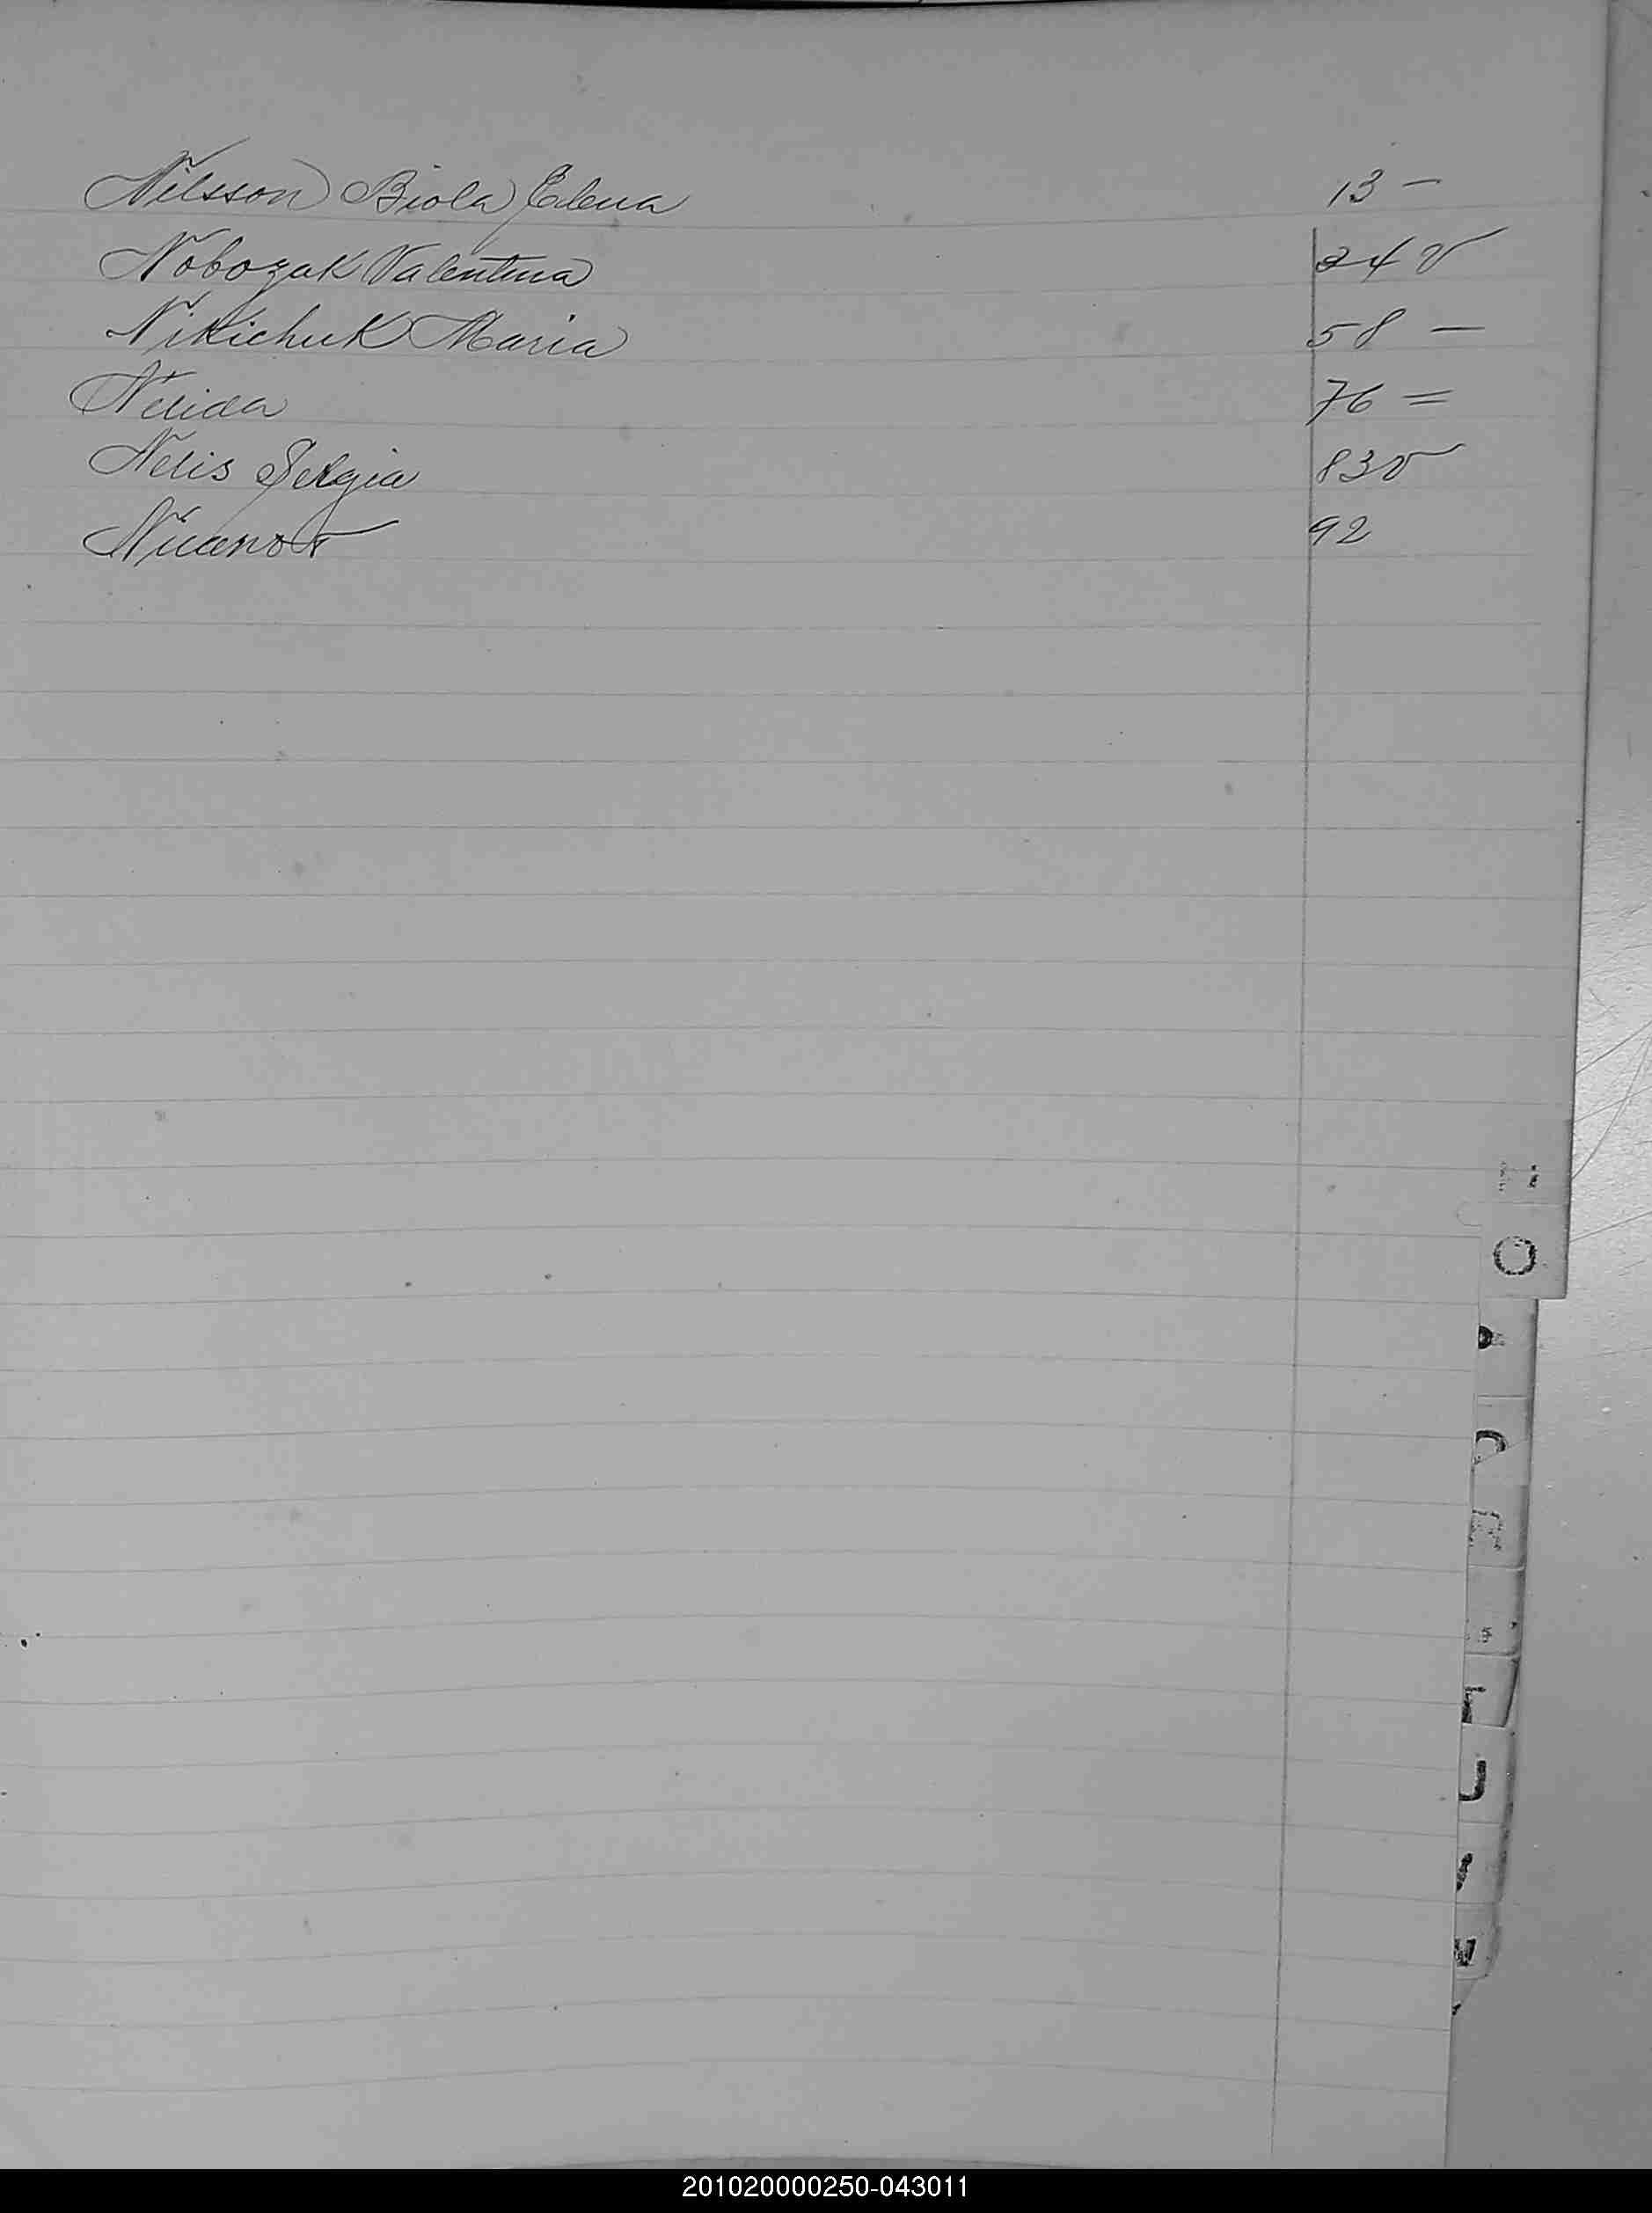 Nilsson Biola Elena 13 -
Nobozak Valentina 24 v
Nikichuk Maria 58 -
Nelida 76 =
Nelis Sergia 83 v
Nicanor 92
O
C
U
V
W
201020000250-043011